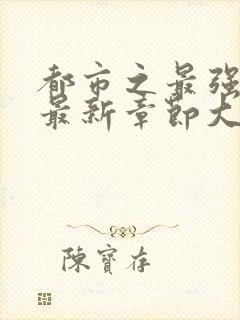 都市之最强
最新章节大
陈寶存